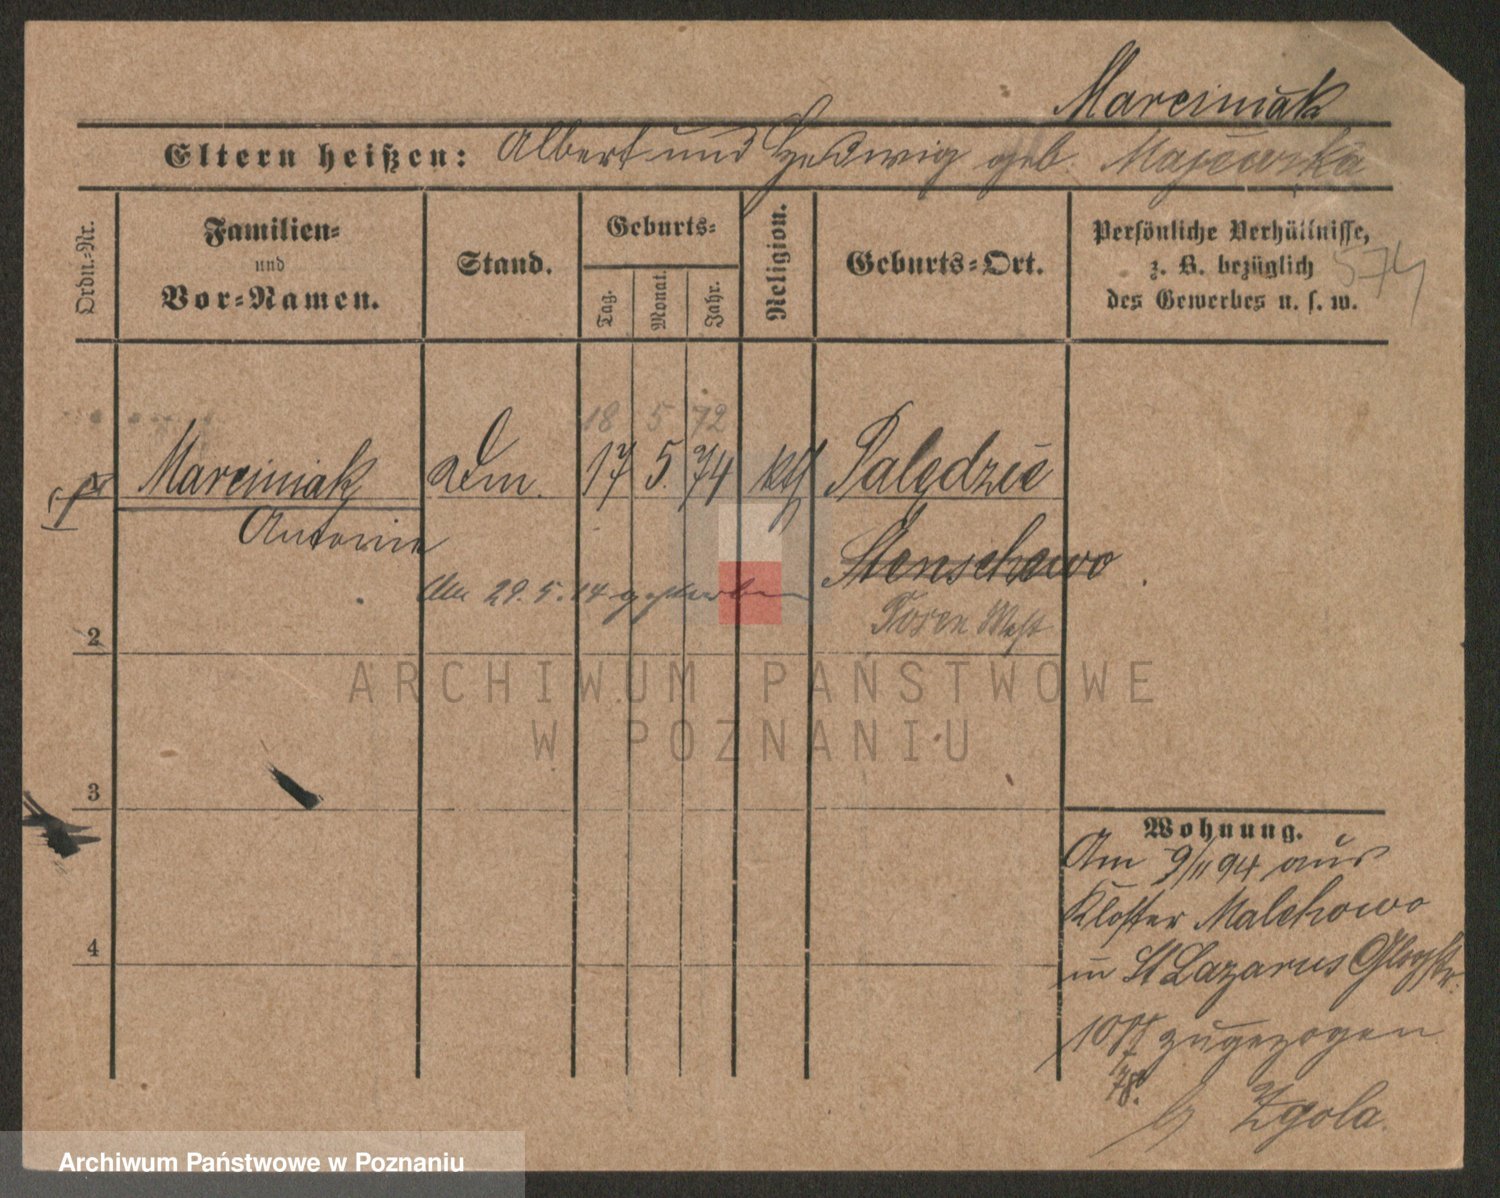 Marciniak
Eltern heißen: Albert und Hedwig geb. Majewska
Ordn.-Nr.
Familien-
und
Vor-Namen.
Stand.
Geburts-
Tag.
Monat.
Jahr.
Religion.
Geburts-Ort.
Persönliche Verhältnisse,
z. B. bezüglich
des Gewerbes u. s. w.
574
18 5 72
1 Marciniak 17 5. 74 kth Palędzie
Antonie
Stenschewo
Am 29.5.14 gestorben
Posen West
2
ARCHIWUM PAŃSTWOWE
W POZNANIU
3
Wohnung.
Am 9/11 94 aus
Kloster Malchowo
in St Lazarus Glogstr.
zugezogen
78.
Zgola.
4
Archiwum Państwowe w Poznaniu